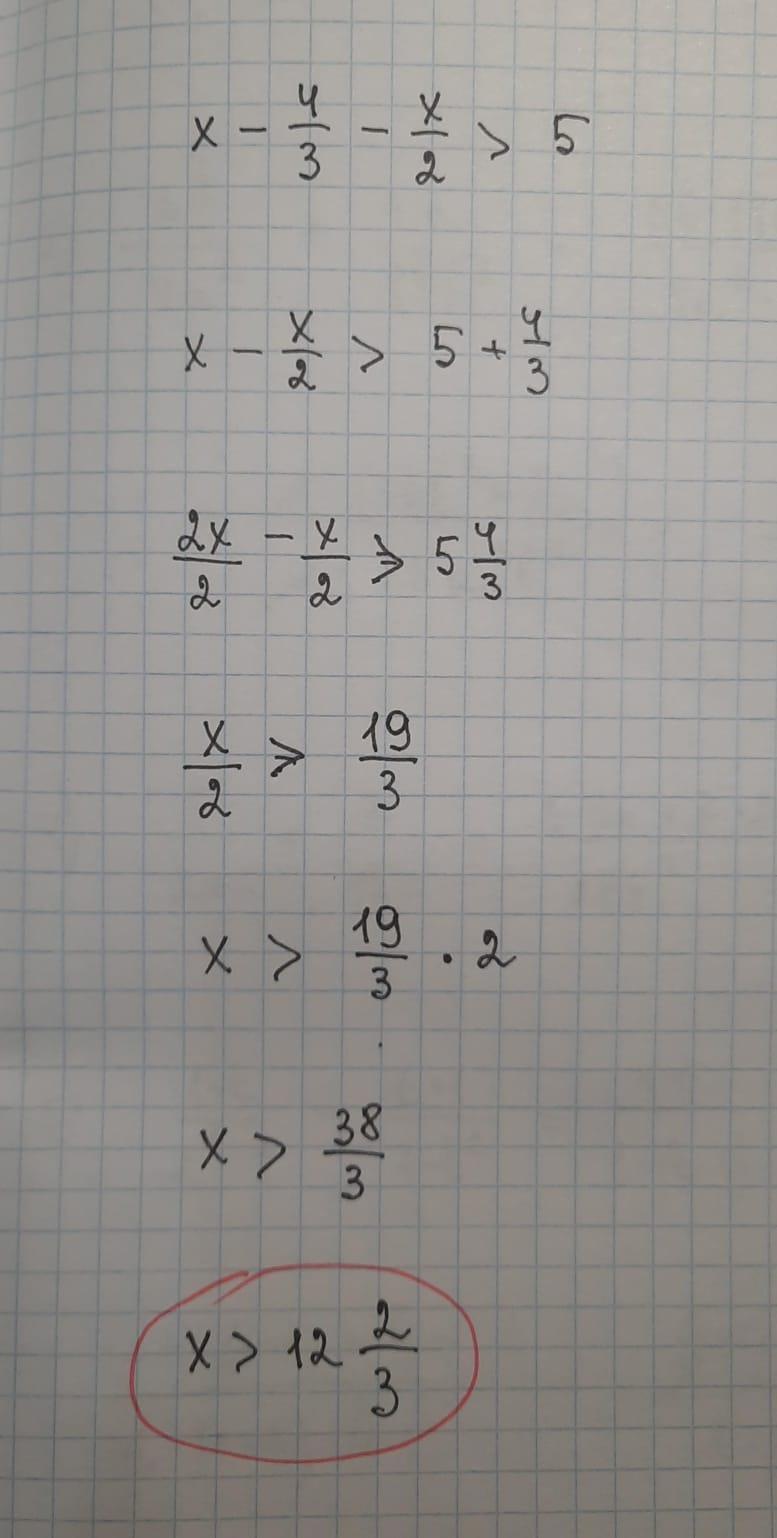 x - 4/3 - x/2 > 5
x - x/2 > 5 + 4/3
2x/2 - x/2 ⩾ 5 4/3
x/2 ⩾ 19/3
x > 19/3 · 2
x > 38/3
x > 12 2/3